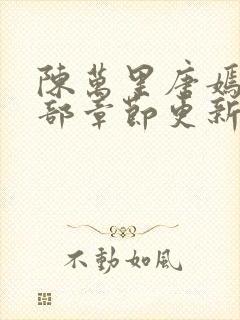 陳萬里唐嫣
部章節更新
不動如風